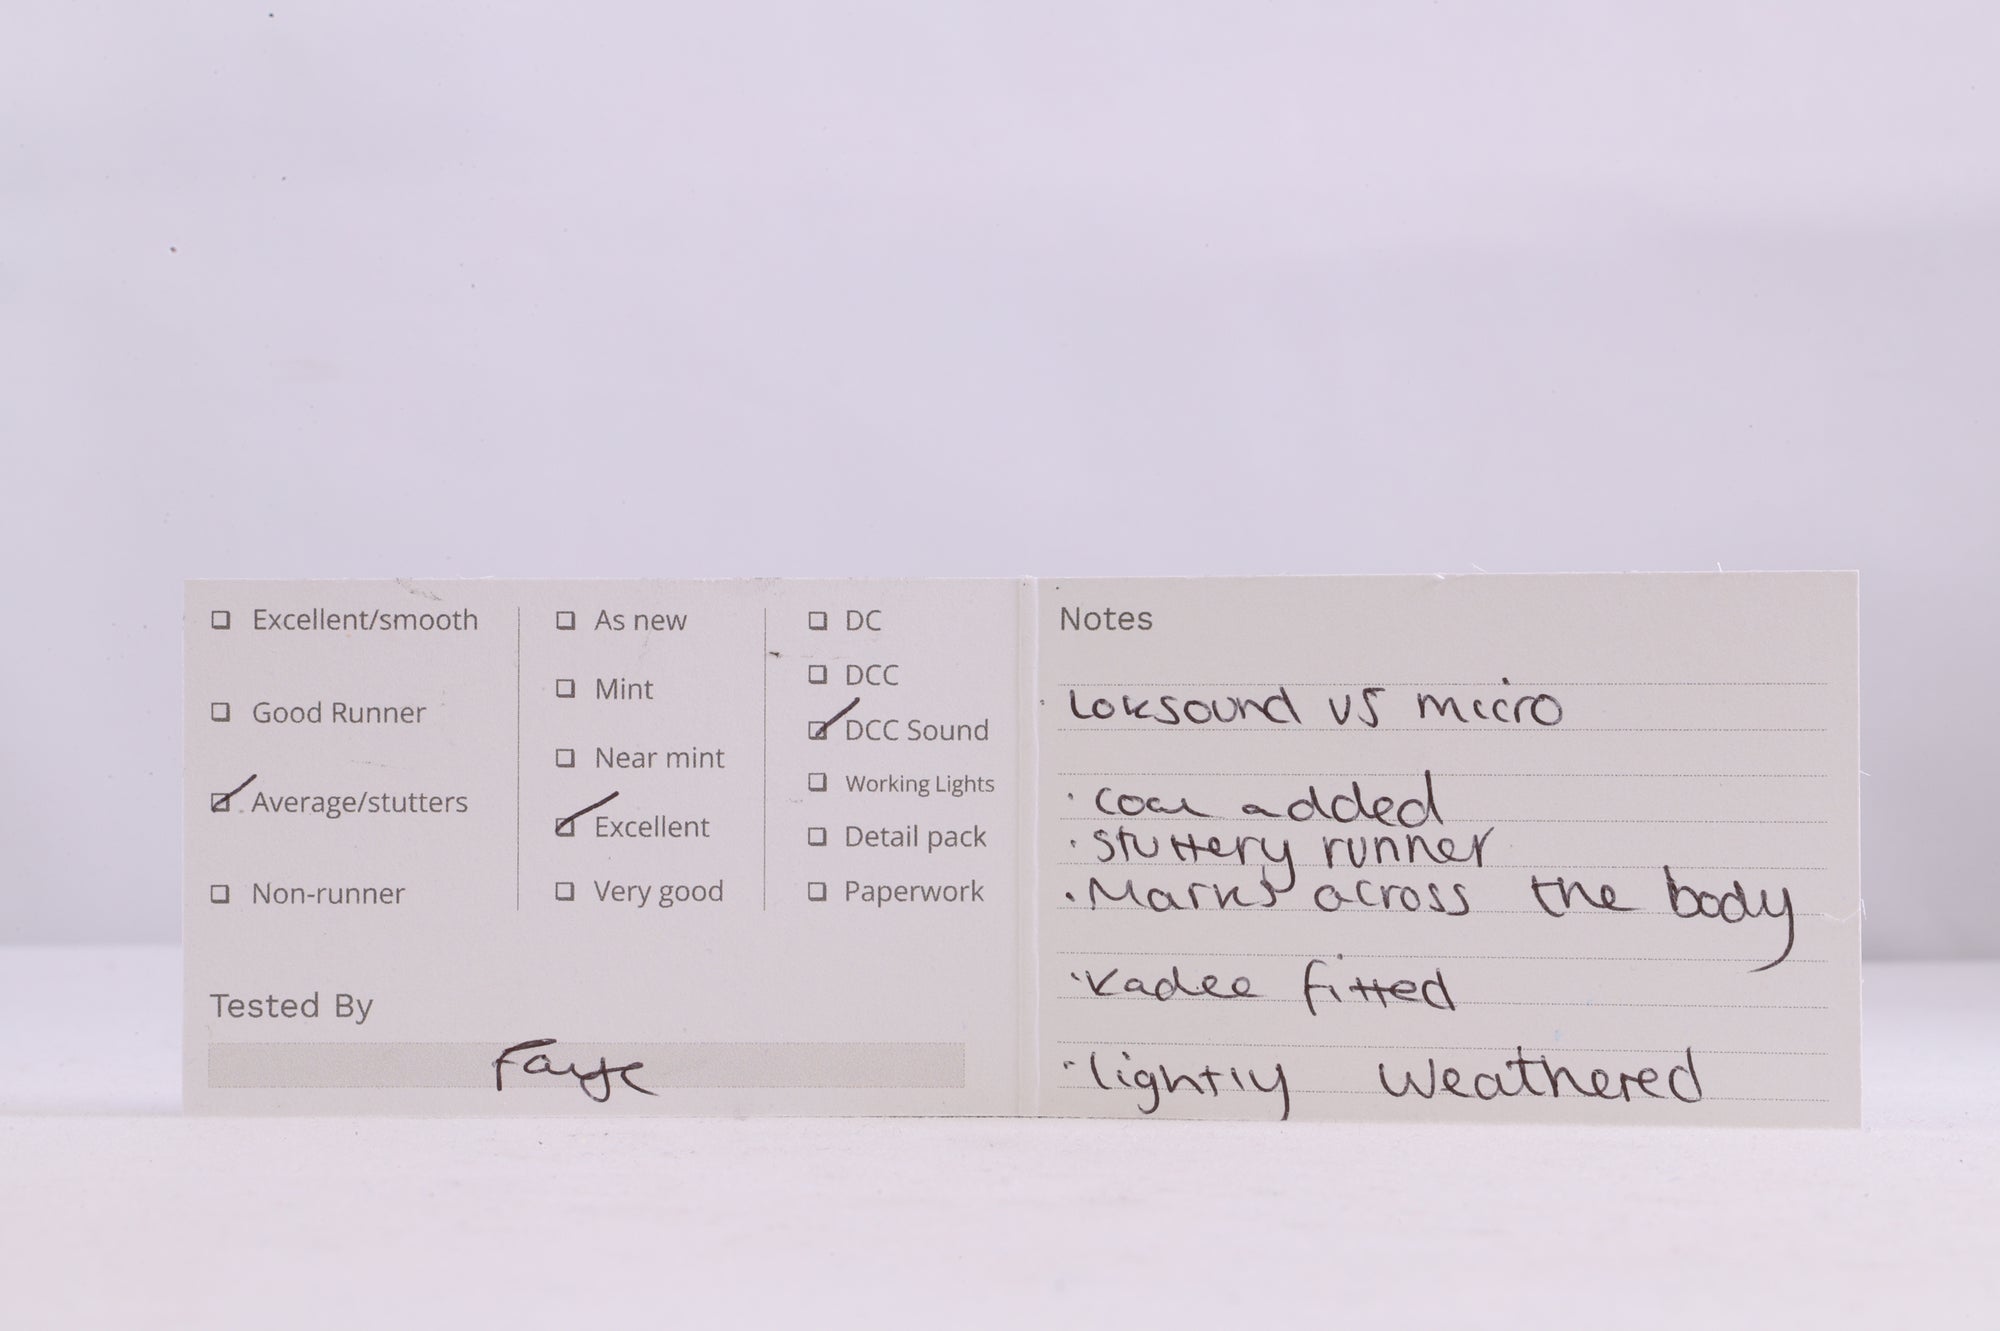 Excellent/smooth
Good Runner
Average/stutters
Non-runner
As new
Mint
Near mint
Excellent
Very good
DC
DCC
DCC Sound
Working Lights
Detail pack
Paperwork
Tested By
Faye
Notes
· Loksound V5 micro
· coal added
· stuttery runner
· Marks across the body
· Kadee fitted
· lightly weathered